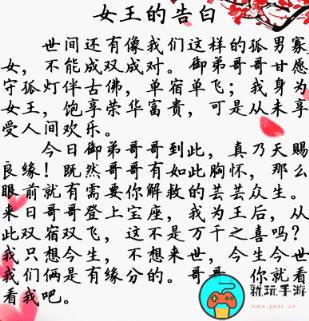 女王的告白
世间还有像我们这样的孤男寡
女，不能成双成对。御弟哥哥甘愿
守孤灯伴古佛，单宿单飞；我身为
女王，饱享荣华富贵，可是从未享
受人间欢乐。
今日御弟哥哥到此，真乃天赐
良缘！既然哥哥有如此胸怀，那么
眼前就有需要你解救的芸芸众生。
来日哥哥登上宝座，我为王后，从
此双宿双飞，这不是万千之喜吗？
我只想今生，不想来世，今生今世
我们俩是有缘分的。哥哥，你就看
看我吧。
就玩手游